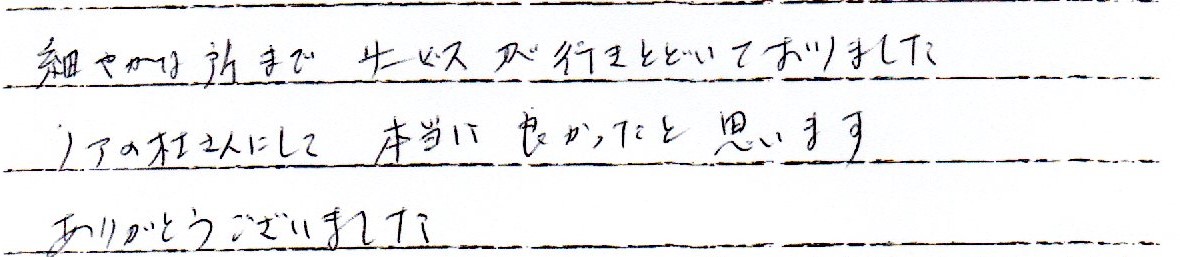 細やかな所まで サービスが行きとどいておりました
ノアの杜さんにして 本当に良かったと思います
ありがとうございました